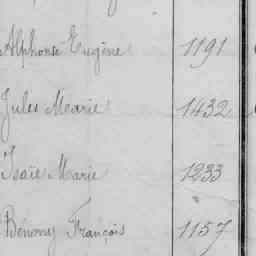 Alphonse Eugène 1191
Jules Marie 1432
Isaïe Marie 1233
Bénony François 1157